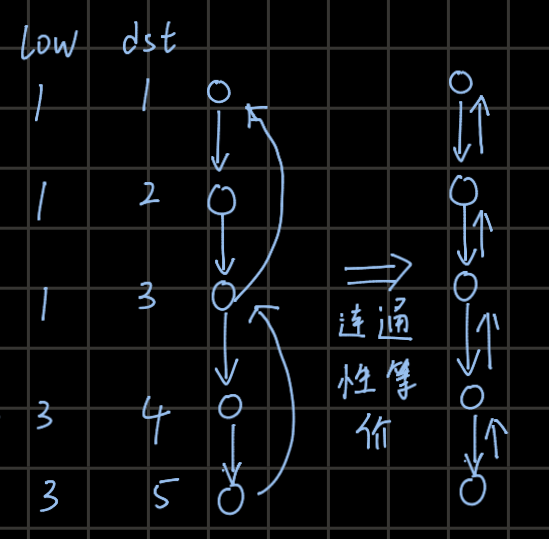 low dst
1 1
1 2
1 3
3 4
3 5
连通
性等
价